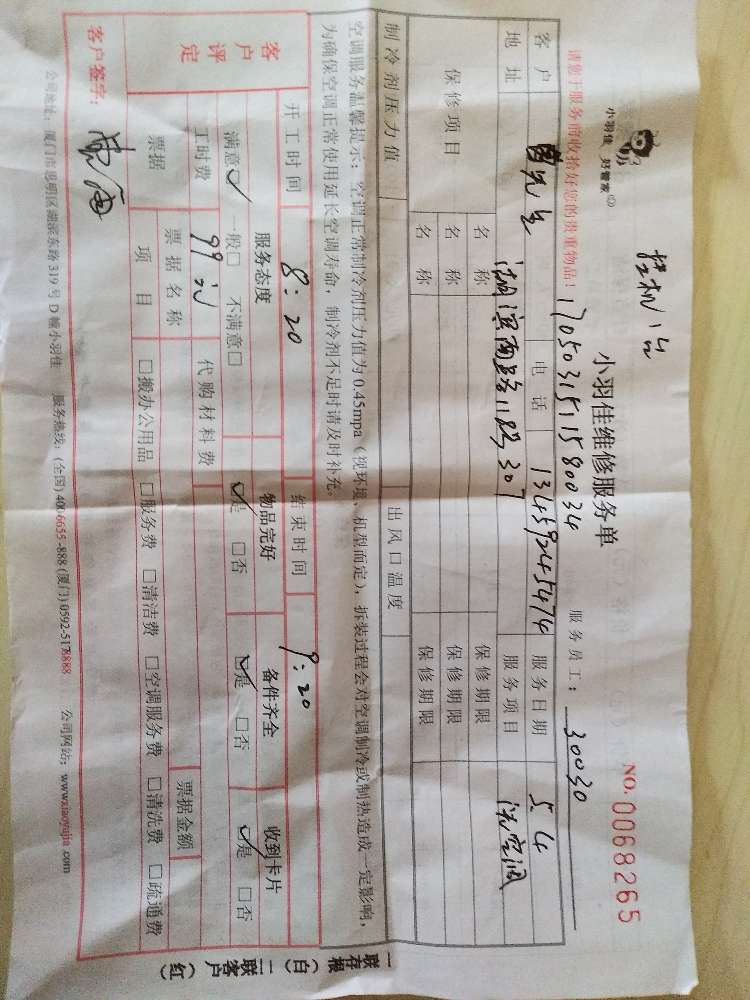 挂机1台
小羽佳 好管家
小羽佳维修服务单
NO. 0068265
1705031511580034
服务员工: 30030
请您于服务前收拾好您的贵重物品!
客户 曾先生 电话 13459245474 服务日期 5.4
地址 湖滨西路11号307 服务项目 洗空调
保修项目 名称 保修期限
名称 保修期限
名称 保修期限
制冷剂压力值 出风口温度
空调服务温馨提示:空调正常制冷剂压力值为0.45mpa(视环境、机型而定),拆装过程会对空调制冷或制热造成一定影响,
为确保空调正常使用延长空调寿命,制冷剂不足时请及时补充。
开工时间 8:20 结束时间 9:20
客户评定 服务态度 物品完好 备件齐全 收到卡片
满意☑ 一般□ 不满意□ ☑是 □否 ☑是 □否 ☑是 □否
工时费 99元 代购材料费
票据 票据名称 票据金额
项目 □搬办公用品 □服务费 □清洁费 □空调服务费 □清洗费 □疏通费
客户签字:
公司地址:厦门市思明区湖滨东路319号D幢小羽佳 服务热线:(全国)400-6655-888(厦门)0592-5178888 公司网站:www.xiaoyujia.com
一联存根(白)二联客户(红)